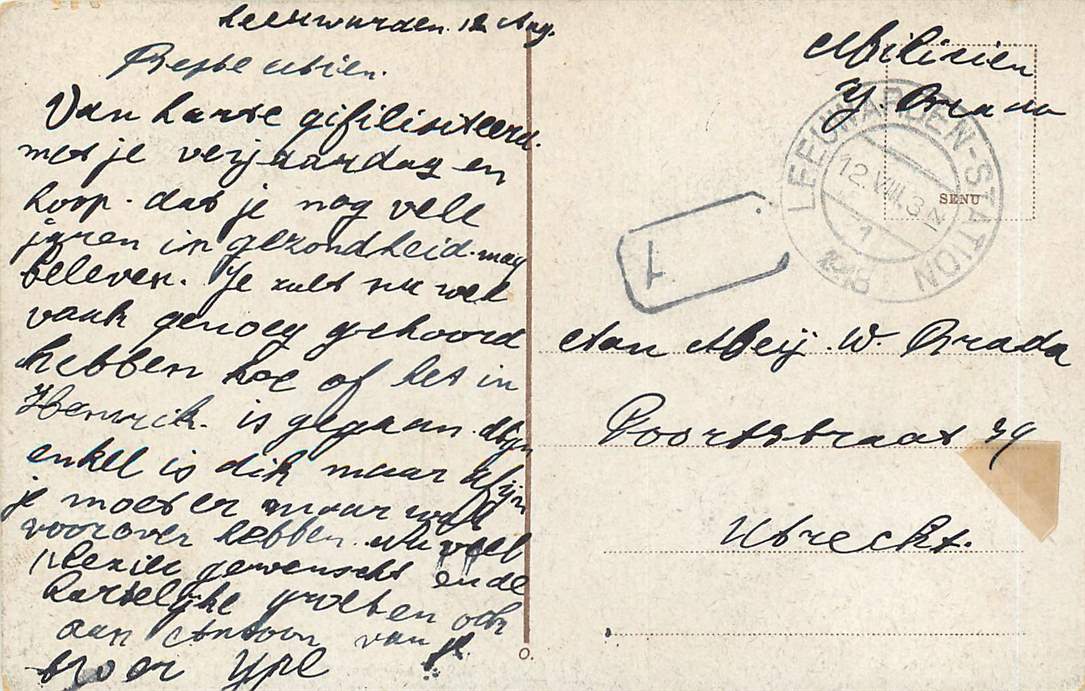 Leeuwarden. 12 Aug.
Beste Mien.
Van harte gifiliciteerd.
met je verjaardag en
hoop. dat je nog vele
jaren in gezondheid. mag
beleven. Je zult nu wel
vaak genoeg gehoord
hebben hoe of het in
is gegaan. Mijn
enkel is dik maar afijn
je moet er maar wat
voor over hebben. nu veel
plezier gewenscht en de
hartelijke groeten ook
aan Antoon van je
broer Ype
Milicien
Y. Brada
LEEUWARDEN-STATION
12.VIII.3 N
1
1918
SENU
Aan Meij. W. Brada
Poortstraat 79
Utrecht.
O.